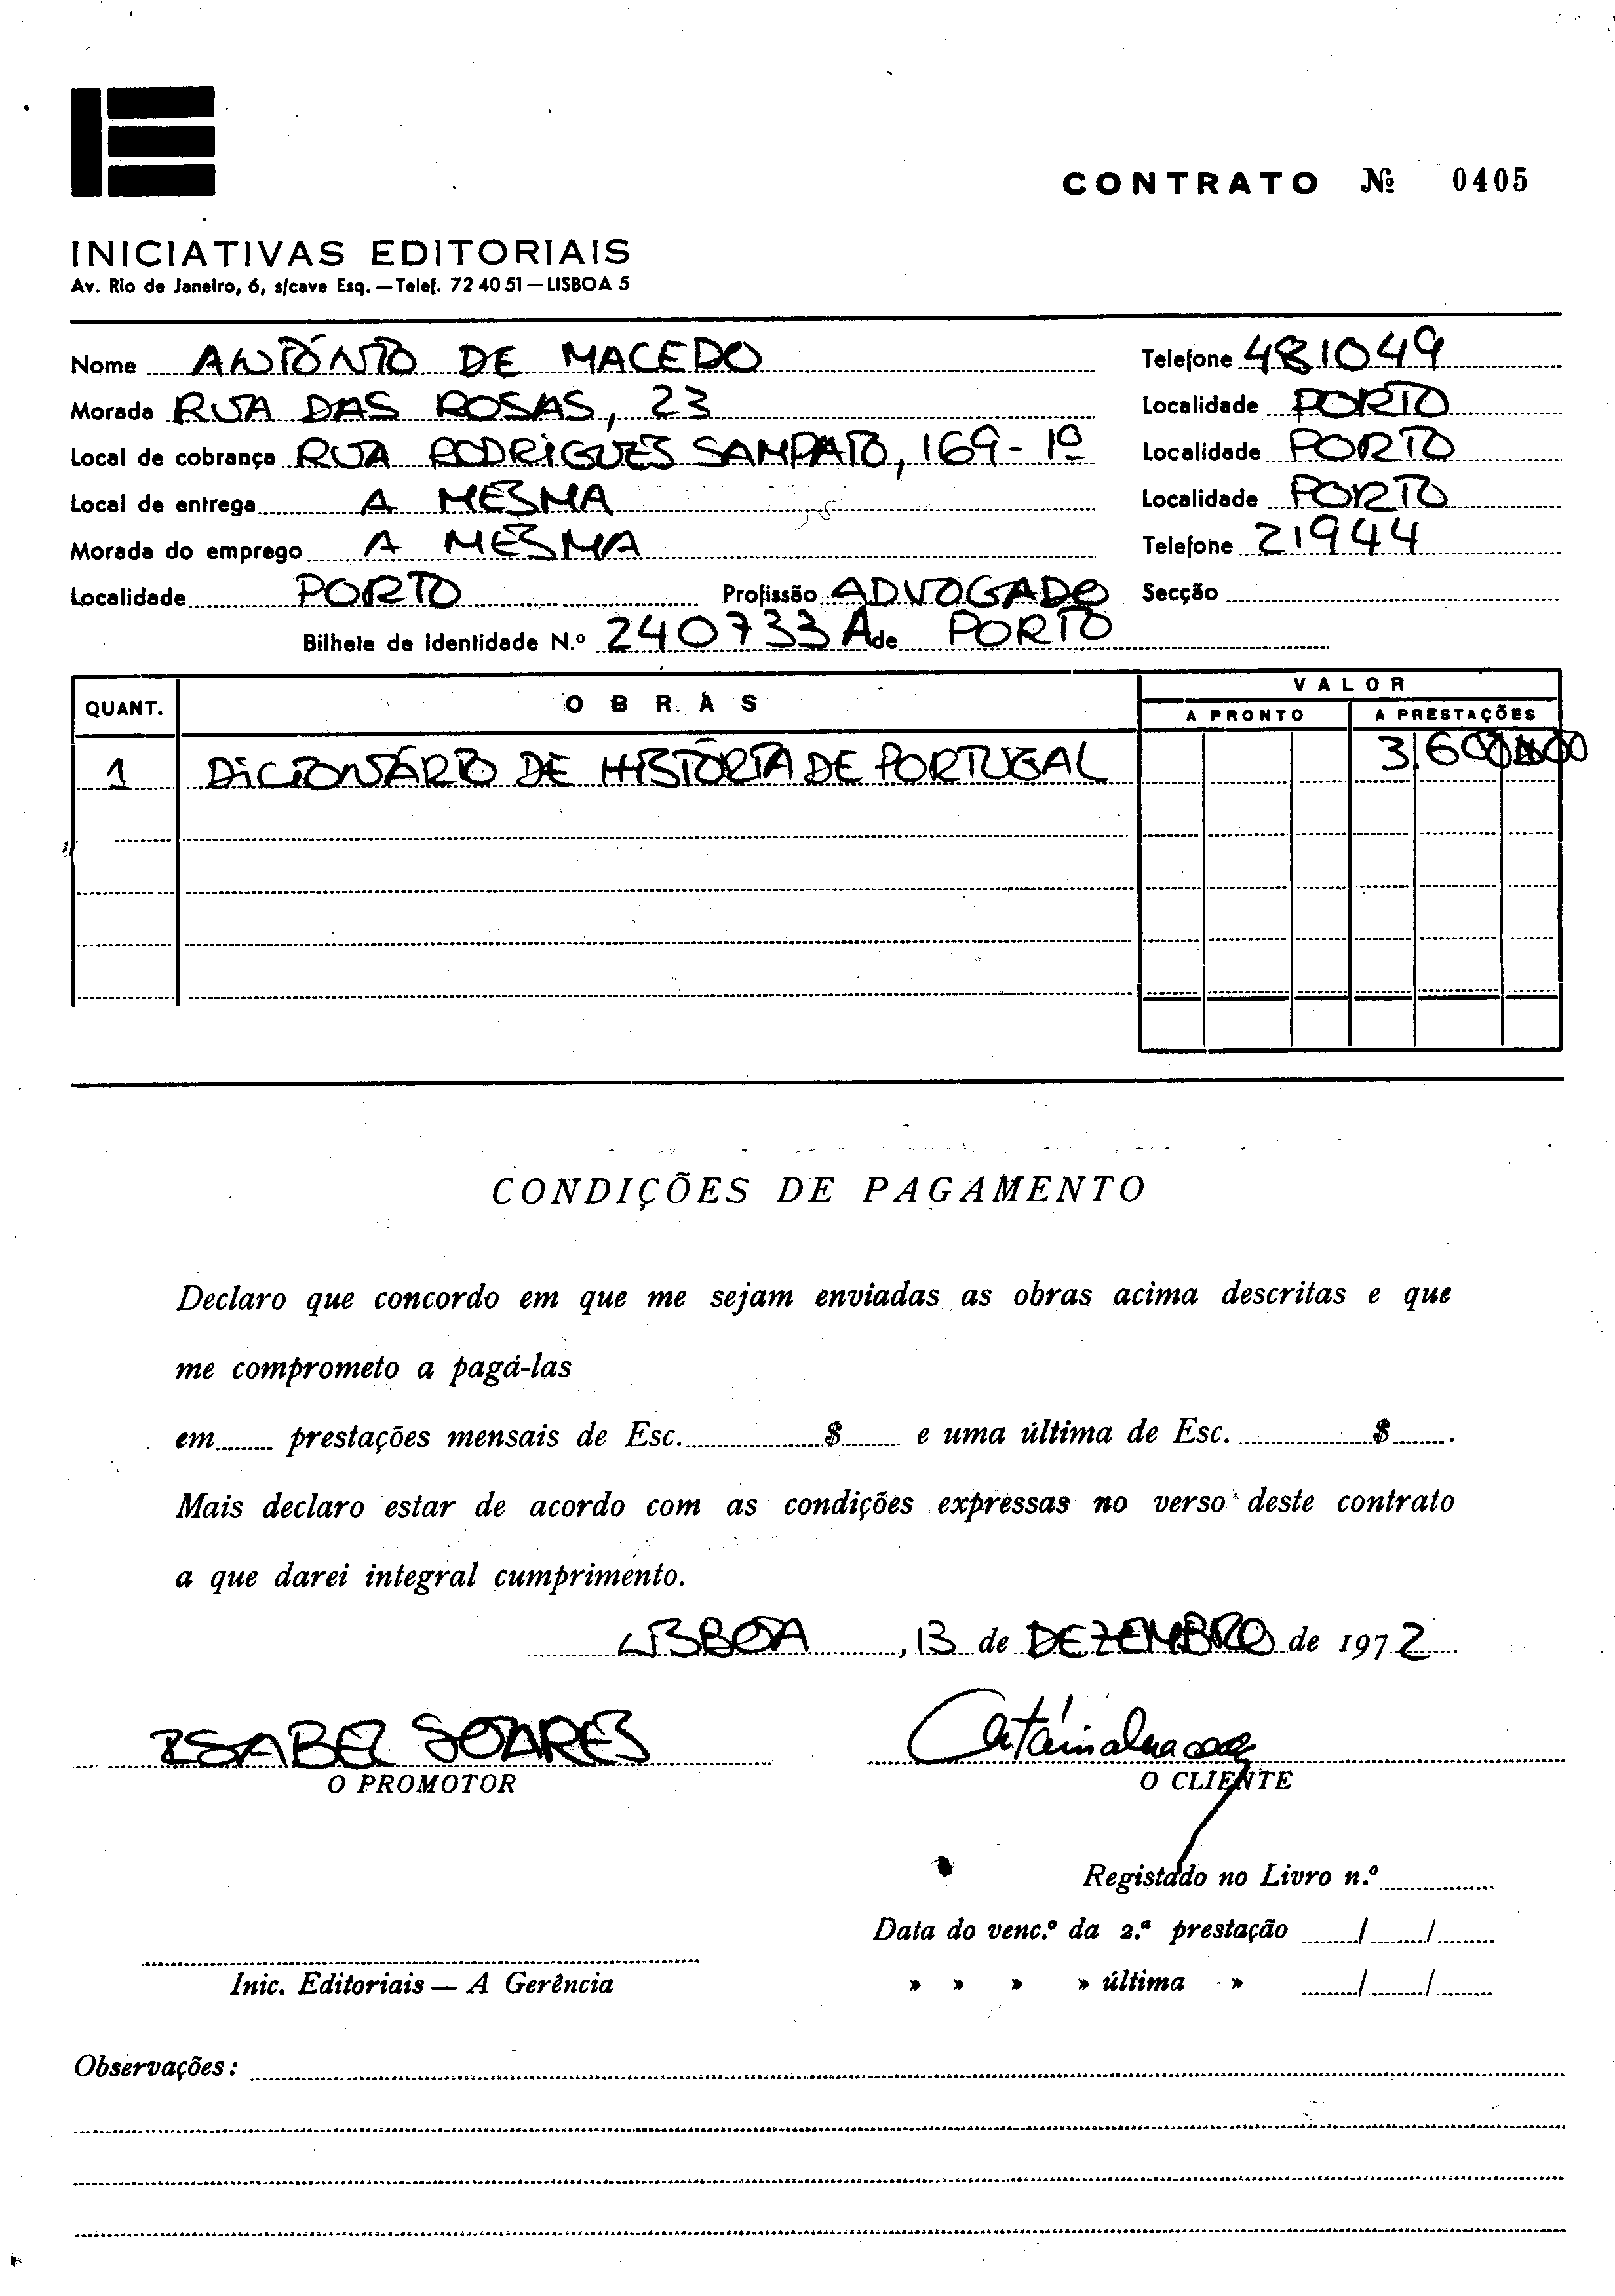 CONTRATO Nº 0405
INICIATIVAS EDITORIAIS
Av. Rio de Janeiro, 6, s/cave Esq. — Telef. 72 40 51 — LISBOA 5
Nome ANTÓNIO DE MACEDO Telefone 481049
Morada RUA DAS ROSAS, 23 Localidade PORTO
Local de cobrança RUA RODRIGUES SAMPAIO, 169-1º Localidade PORTO
Local de entrega A MESMA Localidade PORTO
Morada do emprego A MESMA Telefone 21944
Localidade PORTO Profissão ADVOGADO Secção
Bilhete de Identidade N.º 240733 A de PORTO
QUANT. OBRAS VALOR
A PRONTO A PRESTAÇÕES
1 DICIONÁRIO DE HISTÓRIA DE PORTUGAL
CONDIÇÕES DE PAGAMENTO
Declaro que concordo em que me sejam enviadas as obras acima descritas e que
me comprometo a pagá-las
em prestações mensais de Esc. $ e uma última de Esc. $ .
Mais declaro estar de acordo com as condições expressas no verso deste contrato
a que darei integral cumprimento.
LISBOA, 13 de DEZEMBRO de 1972
ISABEL SOARES
O PROMOTOR O CLIENTE
Registado no Livro n.º
Data do venc.º da 2.ª prestação / /
Inic. Editoriais — A Gerência » » » » última » / /
Observações: